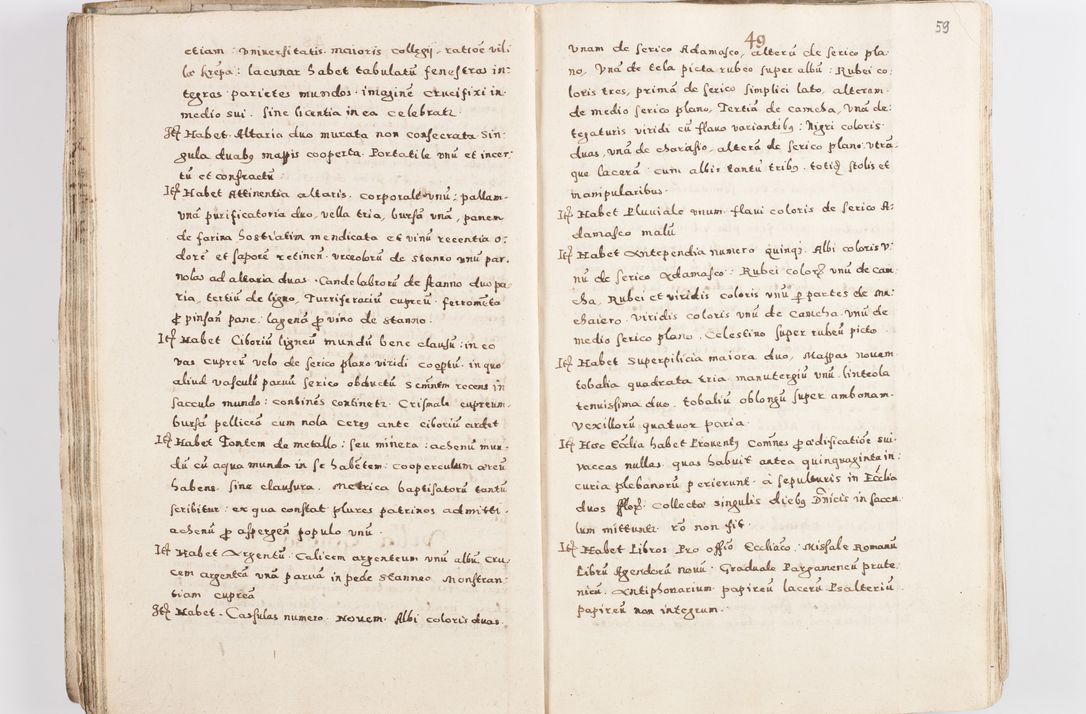 etiam Universitatis maioris collegij ratioē vil:
læ krepa: lacunar habet tabulatū fenestras in:
tegras parietes mundos imaginē Crucifixi in
medio sui. sine licentia in ea celebratr
Itē Habet Altaria duo murata non consecrata Sin:
gula duabꝫ mappis cooperta Portatile unū et incer:
tū et confractū:
Itē Habet Attinentia altaris. corporale unū: pallam
unā purificatoria duo, vella tria, bursā unā, panem
de farina hostiatim mendicata et vinū recentia o:
dorē et saporē retinen̄ urceolorū de stanno unū par,
nolas ad altaria duas. Candelabrorū de stanno duo pa:
ria, tertiū de ligno, Turriferaciū cupreū ferromēta
ꝑ pinsan̄ pane: lagenā ꝑ vino de stanno.
Itē Habet Ciboriū ligneū mundū bene clausū: in eo
vas cupreū velo de serico plano viridi cooptū: in quo
aliud vasculū parvū serico obductū recens in
sacculo mundo: continēs continetr Crismale cupreum
bursā pelliceā cum nola Cereꝯ ante ciboriū ardet
Itē Habet Fontem de metallo: seu minera: achenū mun:
dū cū aqua munda in se habētem: cooperculum æreū
habens sine clausura. Metrica baptisatorū tantū
scribitur ex qua constat plures patrinos admitti.
achenū ꝑ aspergen̄ populo unū
Itē Habet Argentū Calicem argenteum unū albū Cru:
cem argenteā unā parvā in pede stanneo Monstran:
tiam cupreā
Itē Habet Casulas numero Novem Albi coloris duas
59
49
Unam de serico Adamasco, alterā de serico pla:
no, Unā de tela picta rubeo super albū: Rubei co:
loris tres, primā de serico simplici lato, alteram
de medio serico plano, Tertiā de camcha, Unā de:
tegaturis viridi cū flavo variantibꝫ: Nigri coloris
duas, unā de charasio, alterā de serico plano utrā:
que lacerā cum albis tantū tribꝫ, totiꝫ stolis et
manipularibus.
Itē Habet Pluviale unum flavi coloris de serico A:
damasco malū
Itē Habet Antependia numero quinqꝫ Albi coloris v:
nū de serico Adamasco: Rubei colorꝫ unū de cam:
cha, Rubei et viridis coloris unū ꝑ partes de mu:
chaiero. viridis coloris unū de camcha unū de
medio serico plano, Celestino super rubeū picto
Itē Habet Superpilicia maiora duo, Mappas novem
tobalia quadrata tria manutergiū unū linteola
tenuissima duo. tobaliū oblongū super ambonam
Vexillorū quatuor paria.
Itē Hæc Ecclīa habet Proventꝯ Comnes ꝑ ædificatiōe sui
vaccas nullas quas habuit antea quinquaginta in:
curia plebanorū perierunt à sepulturis in Ecclīa
duos flor. Collecta singulis diebꝫ Dnīcis in saccu:
lum mittuntr rō non fit
Itē Habet Libros Pro offiō Ecclīaō. Missale Romanū
Librū Agendorū novū Graduale Pargamenecū prute:
nicū. Antiphonarium papireū lacerū Psalteriū
papireū non integrum.